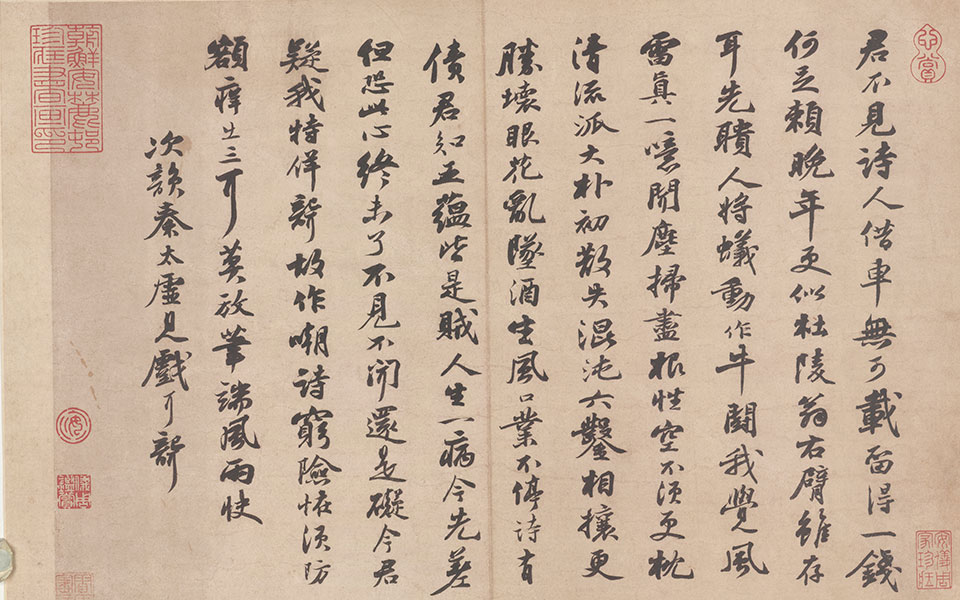 心賞
安儀周
家珍藏
君不見詩人借車無可載留得一錢
何足賴晚年更似杜陵翁右臂雖存
耳先聵人將蟻動作牛鬪我覺風
雷真一噫聞塵掃盡根性空不須更枕
清流派大朴初散失混沌六鑿相攘更
勝壞眼花亂墜酒生風口業不停詩有
債君知五蘊皆是賊人生一病今先差
但恐此心終未了不見不聞還是礙今君
疑我特佯聾故作嘲詩窮險怪須防
額痒出三耳莫放筆端風雨快
次韻秦太虛見戲耳聾
朝鮮安麓邨
珍藏書畫印